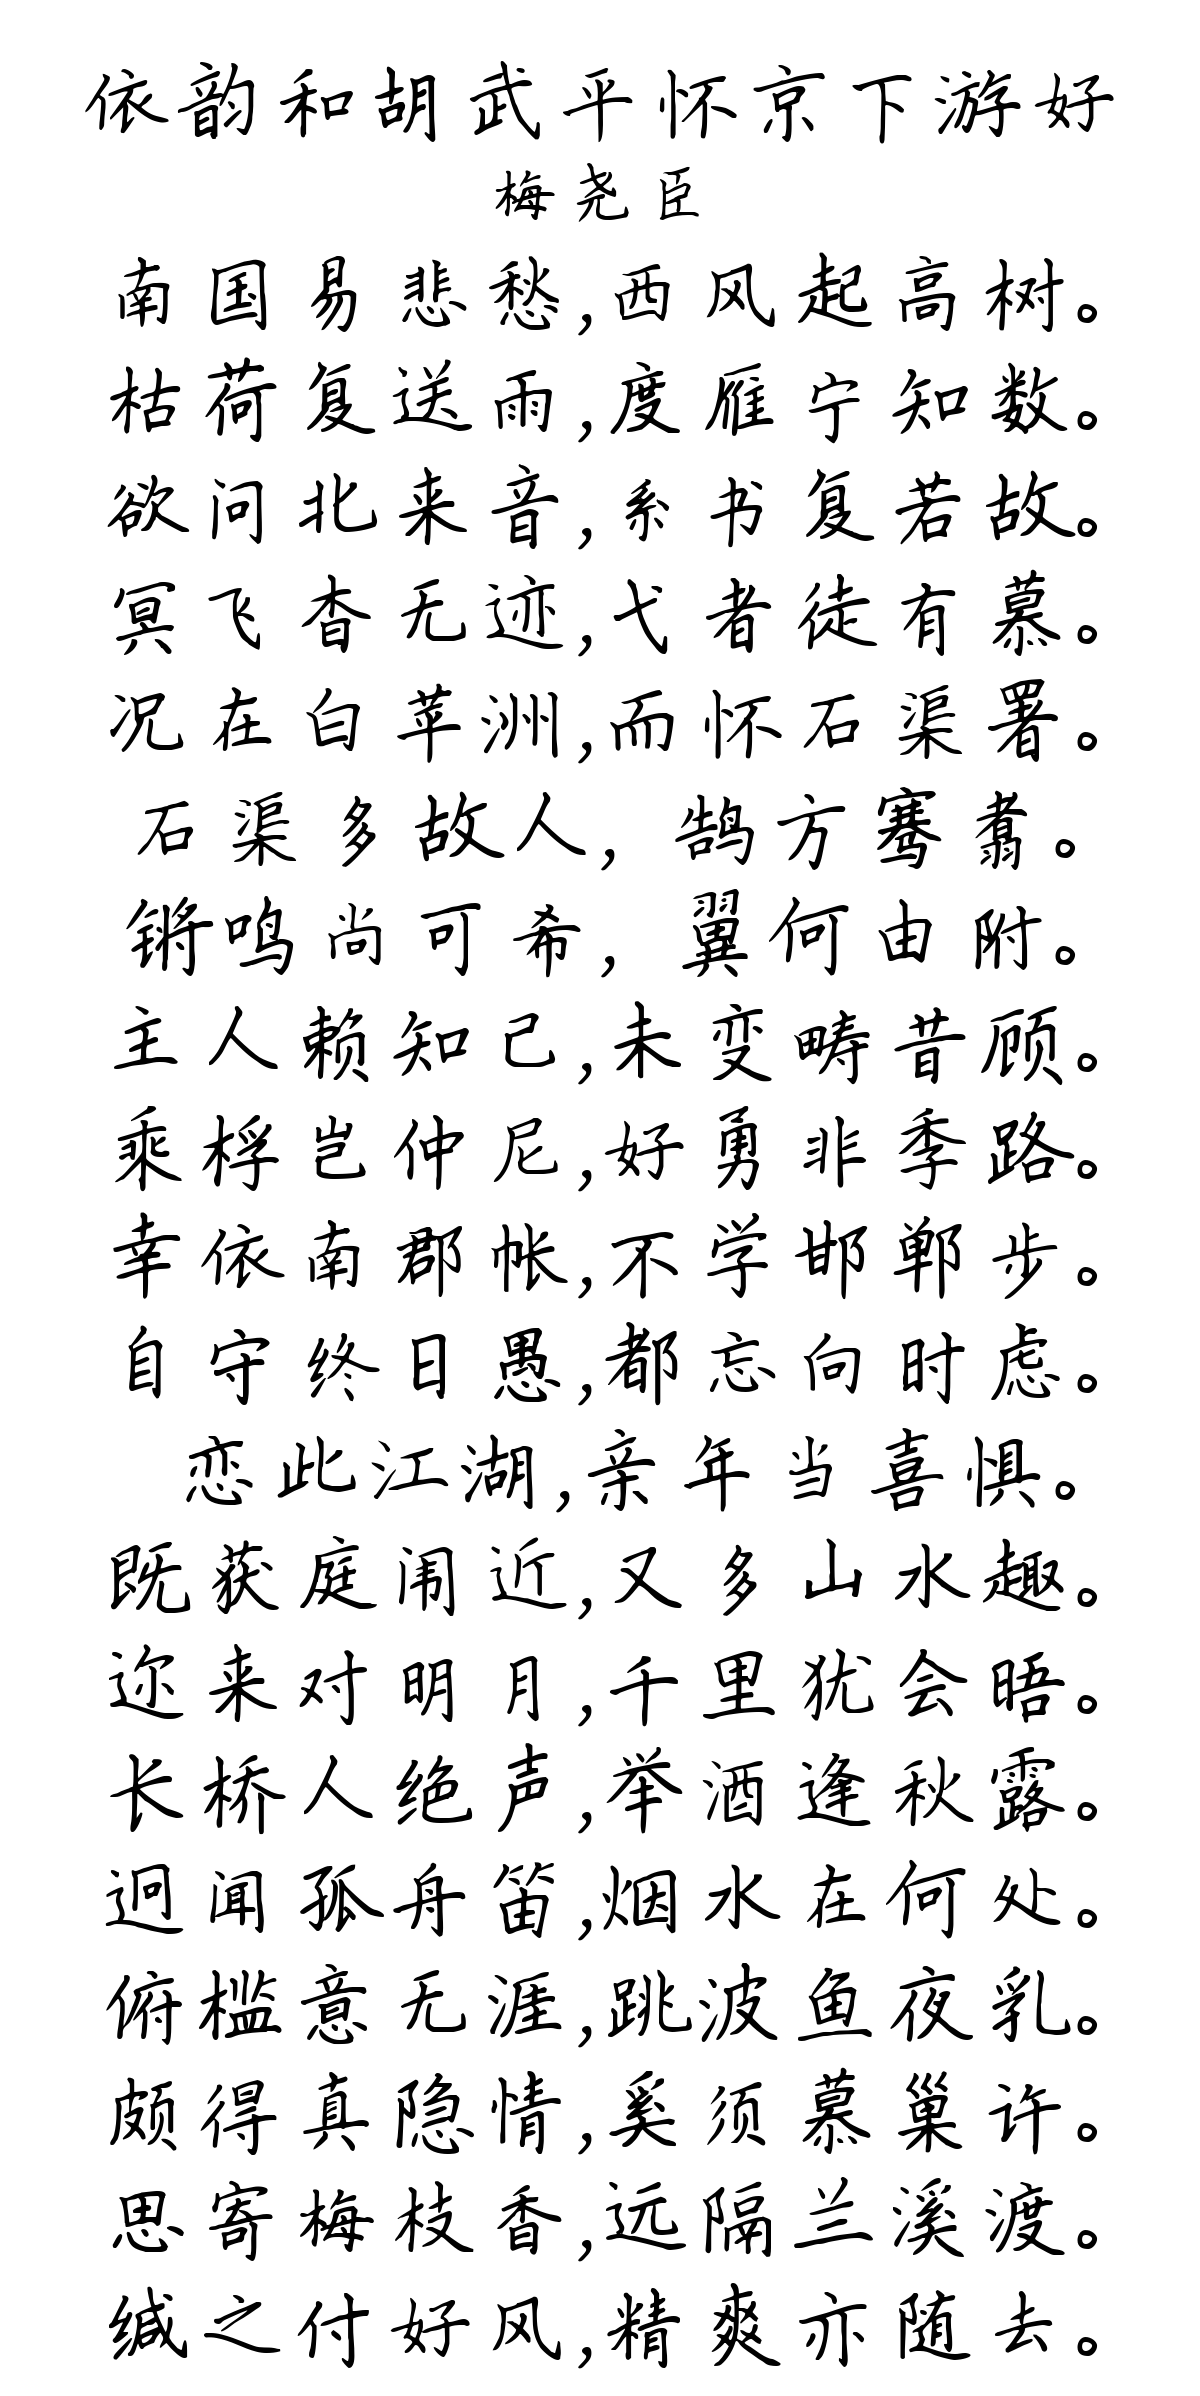 依韵和胡武平怀京下游好
梅尧臣
南国易悲愁,西风起高树。
枯荷复送雨,度雁宁知数。
欲问北来音,系书复若故。
冥飞杳无迹,弋者徒有慕。
况在白苹洲,而怀石渠署。
石渠多故人,鹄方骞翥。
锵鸣尚可希,翼何由附。
主人赖知己,未变畴昔顾。
乘桴岂仲尼,好勇非季路。
幸依南郡帐,不学邯郸步。
自守终日愚,都忘向时虑。
恋此江湖,亲年当喜惧。
既获庭闱近,又多山水趣。
迩来对明月,千里犹会晤。
长桥人绝声,举酒逢秋露。
迥闻孤舟笛,烟水在何处。
俯槛意无涯,跳波鱼夜乳。
颇得真隐情,奚须慕巢许。
思寄梅枝香,远隔兰溪渡。
缄之付好风,精爽亦随去。